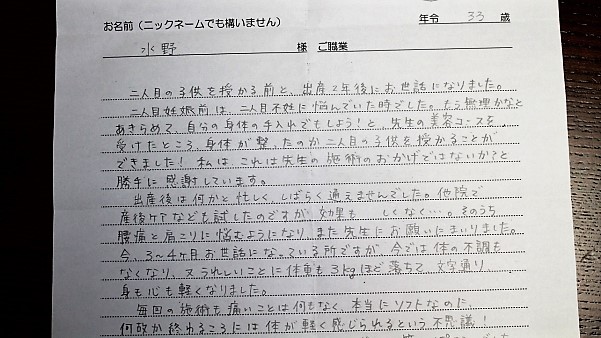 お名前(ニックネームでも構いません) 年令 33 歳
水野 様 ご職業
二人目の子供を授かる前と、出産2年後にお世話になりました。
二人目妊娠前は、二人目不妊に悩んでいた時でした。もう無理かなと
あきらめて、自分の身体の手入れでもしよう!と、先生の美容コースを
受けたところ、身体が整ったのか二人目の子供を授かることが
できました!私は、これは先生の施術のおかげではないか?と
勝手に感謝しています。
出産後は何かと忙しく、しばらく通えませんでした。他院で
産後ケアなども試したのですが、効果も しくなく…。そのうち
腰痛と肩こりに悩むようになり、また先生にお願いにまいりました。
今、3~4ヶ月お世話になっている所ですが、今では体の不調も
なくなり、又うれしいことに体重も3kgほど落ちて、文字通り
身も心も軽くなりました。
毎回の施術も痛いことは何もなく、本当にソフトなのに、
何故か終わるころには体が軽く感じられるという不思議!